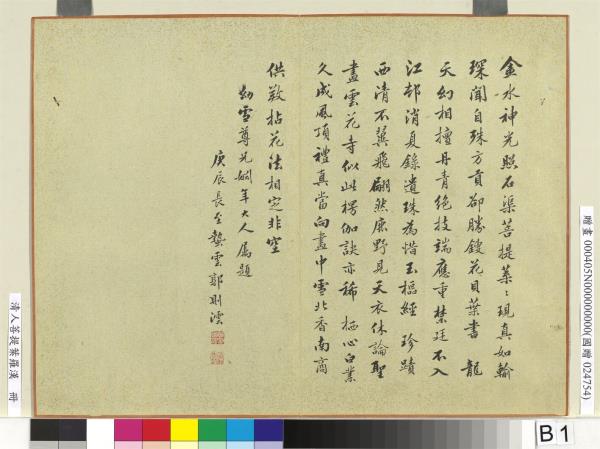 金水神光照石渠菩提葉葉現真如輸
琛聞自殊方貢卻勝鏤花貝葉書 龍
天幻相擅丹青絕技端應重禁廷不入
江邨消夏錄遺珠為惜玉樞經 珍蹟
西清不翼飛翩然塵野見天衣休論聖
畫雲花寺似此楞伽訣亦稀 栖心白業
久成風頂禮真當向畫中雪北香南商
供敬拈花法相定非空
劫雪尊兄嫻年大人屬題
庚辰長至蟄雲郭則澐
清人菩提葉羅漢 冊
贈畫 000405N000000000(國贈 024754)
B1